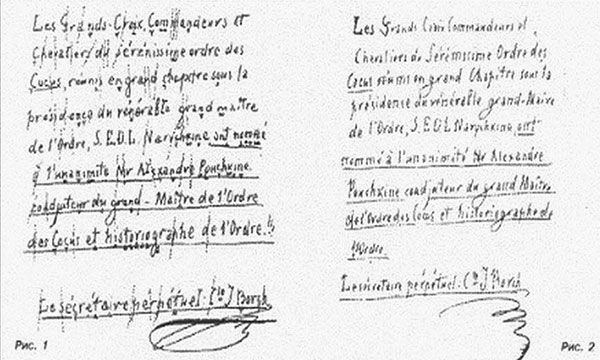 Les Grands-Croix, Commandeurs et
Chevaliers du sérénissime ordre des
Cocus, réunis en grand chapitre sous la
présidence du vénérable grand maître
de l'Ordre, S.E.D.L. Narichkine ont nommé
à l'unanimité Mr Alexandre Pouchkine
coadjuteur du grand-Maître de l'Ordre
des Cocus et historiographe de l'Ordre.
Le sécrétaire perpétuel: Cte J Borch
Рис. 1
Les Grands Croix Commandeurs et
Chevaliers de Sérénissime Ordre des
Cocus réunis en grand Chapitre sous la
présidence du vénérable grand-Maître
de l'Ordre, S.E.D.L Narichkine ont
nommé à l'unanimité Mr Alexandre
Pouchkine coadjuteur du grand Maître
de l'Ordre des Cocus et historiographe de
l'Ordre.
Le sécrétaire perpétuel: Cte J Borch
Рис. 2